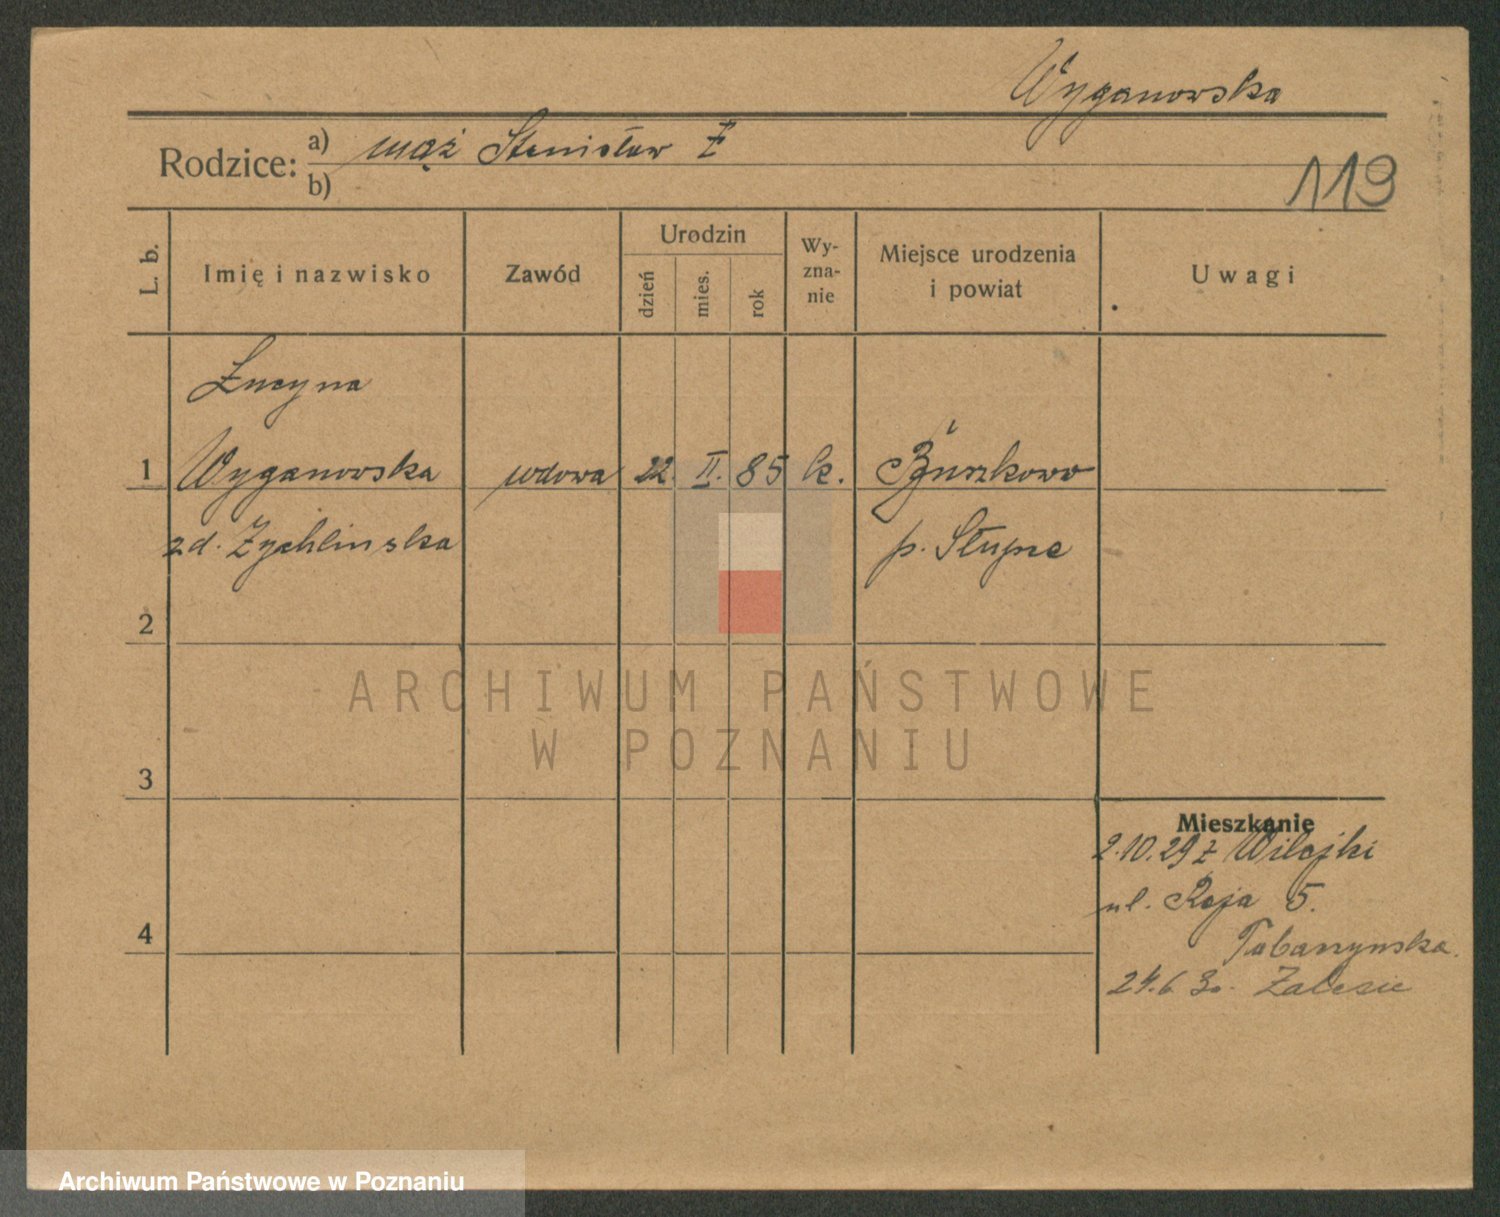 Wyganowska
Rodzice: a) mąż Stanisław Ż
b)
119
L. b. Imię i nazwisko Zawód Urodzin dzień mies. rok Wy-zna-nie Miejsce urodzenia i powiat Uwagi
Łucyna
1 Wyganowska wdowa 22. II. 85 k. Buszkowo
zd. Zychlinska p. Słupca
2
ARCHIWUM PAŃSTWOWE
W POZNANIU
3
Mieszkanie
2.10.29 z Wilejki
ul. Reja 5.
4
Tabaczynska.
24.6 30. Zalesie
Archiwum Państwowe w Poznaniu